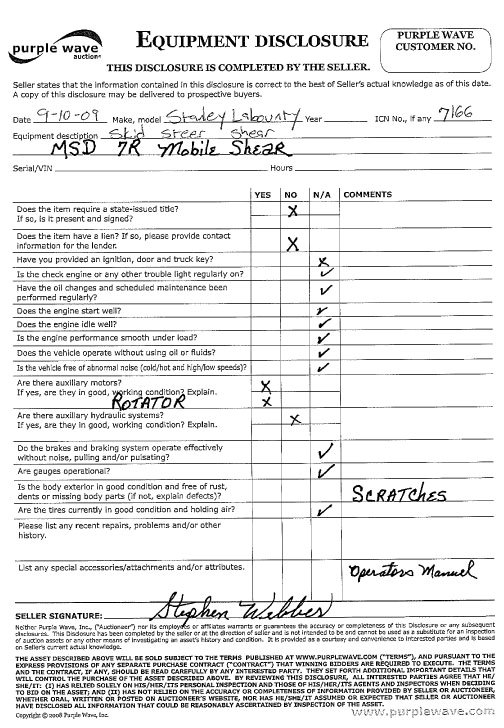 purple wave
auction
EQUIPMENT DISCLOSURE
PURPLE WAVE
CUSTOMER NO.
THIS DISCLOSURE IS COMPLETED BY THE SELLER.
Seller states that the information contained in this disclosure is correct to the best of Seller's actual knowledge as of this date.
A copy of this disclosure may be delivered to prospective buyers.
Date 9-10-09 Make, model Stanley Labounty Year ICN No., if any 7166
Equipment desctiption Skid Steer Shear
MSD 7R Mobile Shear
Serial/VIN Hours
YES NO N/A COMMENTS
Does the item require a state-issued title? X
If so, is it present and signed?
Does the item have a lien? If so, please provide contact X
information for the lender.
Have you provided an ignition, door and truck key? X
Is the check engine or any other trouble light regularly on? ✓
Have the oil changes and scheduled maintenance been ✓
performed regularly?
Does the engine start well? ✓
Does the engine idle well? ✓
Is the engine performance smooth under load? ✓
Does the vehicle operate without using oil or fluids? ✓
Is the vehicle free of abnormal noise (cold/hot and high/low speeds)? ✓
Are there auxiliary motors? X
If yes, are they in good, working condition? Explain. X
ROTATOR
Are there auxiliary hydraulic systems? X
If yes, are they in good, working condition? Explain.
Do the brakes and braking system operate effectively ✓
without noise, pulling and/or pulsating?
Are gauges operational? ✓
Is the body exterior in good condition and free of rust,
dents or missing body parts (if not, explain defects)? SCRATCHES
Are the tires currently in good condition and holding air? ✓
Please list any recent repairs, problems and/or other
history.
List any special accessories/attachments and/or attributes. Operators Manuel
SELLER SIGNATURE: Stephen Webber
Neither Purple Wave, Inc., ("Auctioneer") nor its employees or affiliates warrants or guarantees the accuracy or completeness of this Disclosure or any subsequent
disclosures. This Disclosure has been completed by the seller or at the direction of seller and is not intended to be and cannot be used as a substitute for an inspection
of auction assets or any other means of investigating an asset's history and condition. It is provided as a courtesy and convenience to interested parties and is based
on Seller's current actual knowledge.
THE ASSET DESCRIBED ABOVE WILL BE SOLD SUBJECT TO THE TERMS PUBLISHED AT WWW.PURPLEWAVE.COM ("TERMS"), AND PURSUANT TO THE
EXPRESS PROVISIONS OF ANY SEPARATE PURCHASE CONTRACT ("CONTRACT") THAT WINNING BIDDERS ARE REQUIRED TO EXECUTE. THE TERMS
AND THE CONTRACT, IF ANY, SHOULD BE READ CAREFULLY BY ANY INTERESTED PARTY. THEY SET FORTH ADDITIONAL IMPORTANT DETAILS THAT
WILL CONTROL THE PURCHASE OF THE ASSET DESCRIBED ABOVE. BY REVIEWING THIS DISCLOSURE, ALL INTERESTED PARTIES AGREE THAT HE/
SHE/IT: (I) HAS RELIED SOLELY ON HIS/HER/ITS PERSONAL INSPECTION AND THOSE OF HIS/HER/ITS AGENTS AND INSPECTORS WHEN DECIDING
TO BID ON THE ASSET; AND (II) HAS NOT RELIED ON THE ACCURACY OR COMPLETENESS OF INFORMATION PROVIDED BY SELLER OR AUCTIONEER,
WHETHER ORAL, WRITTEN OR POSTED ON AUCTIONEER'S WEBSITE, NOR HAS HE/SHE/IT ASSUMED OR EXPECTED THAT SELLER OR AUCTIONEER
HAVE DISCLOSED ALL INFORMATION THAT COULD BE REASONABLY ASCERTAINED BY INSPECTION OF THE ASSET.
Copyright © 2008 Purple Wave, Inc.
www.purplewave.com